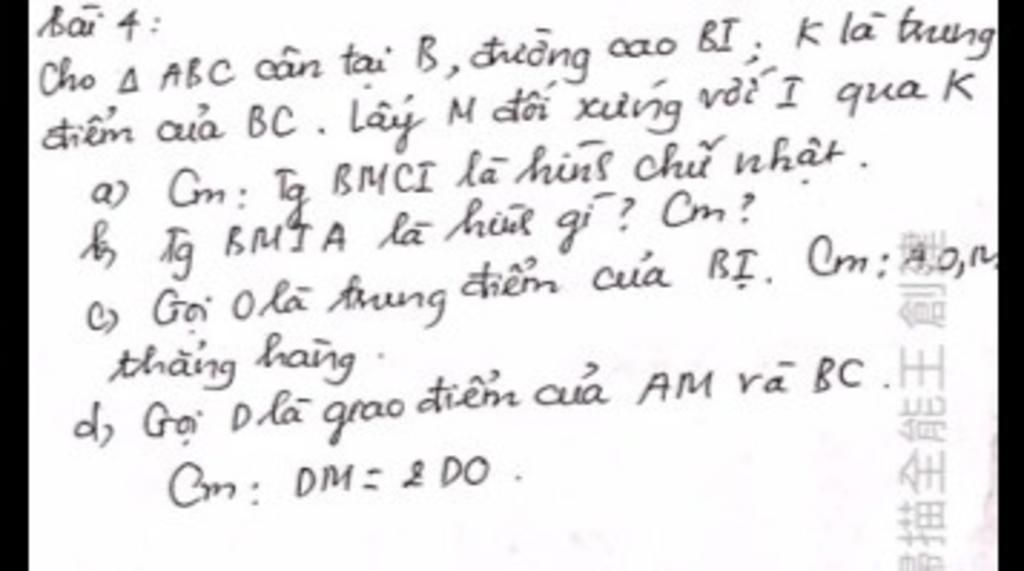 Bài 4:
Cho Δ ABC cân tại B, đường cao BI; K là trung
điểm của BC. Lấy M đối xứng với I qua K
a) Cm: Tg BMCI là hình chữ nhật.
b) Tg BMIA là hình gì? Cm?
c) Gọi O là trung điểm của BI. Cm: A, O, M
thẳng hàng.
d) Gọi D là giao điểm của AM và BC.
Cm: DM = 2 DO.
掃描全能王 創建